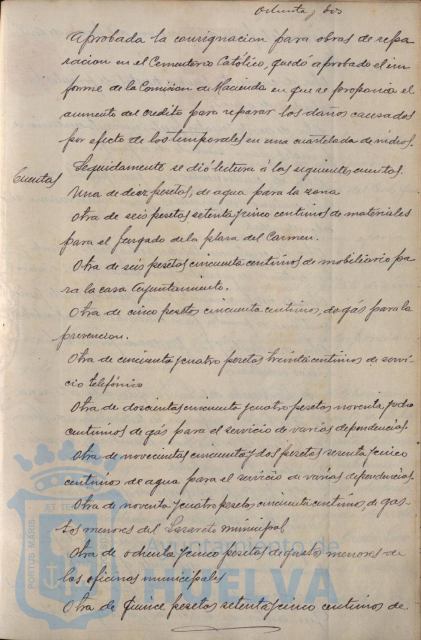 ochenta y dos
Aprobada la consignacion para obras de repa
racion en el Cementerio Católico, quedó aprobado el in
forme de la Comision de Hacienda en que se proponia el
aumento del credito para reparar los daños causados
por efecto de los temporales en una cuartelada de nichos.
Cuentas
Seguidamente se dió lectura á las siguientes cuentas.
Una de diez pesetas, de agua para la zona
Otra de seis pesetas setenta y cinco centimos de materiales
para el Juzgado de la plaza del Carmen.
Otra de seis pesetas cincuenta centimos de mobiliario pa
ra la casa Ayuntamiento.
Otra de cinco pesetas cincuenta centimos, de gás para la
prevencion.
Otra de cincuenta y cuatro pesetas treinta centimos de servi
cio telefónico
Otra de doscientas cincuenta y cuatro pesetas noventa y ocho
centimos de gás para el servicio de varias dependencias.
Otra de novecientas cincuenta y dos pesetas setenta y cinco
centimos de agua para el servicio de varias dependencias.
Otra de noventa y cuatro pesetas cincuenta centimos, de gas-
tos menores del Lazareto municipal
Otra de ochenta y cinco pesetas de gastos menores de
las oficinas municipales
Otra de quince pesetas setenta y cinco centimos de
PORTUS MARIS
Ayuntamiento de
HUELVA